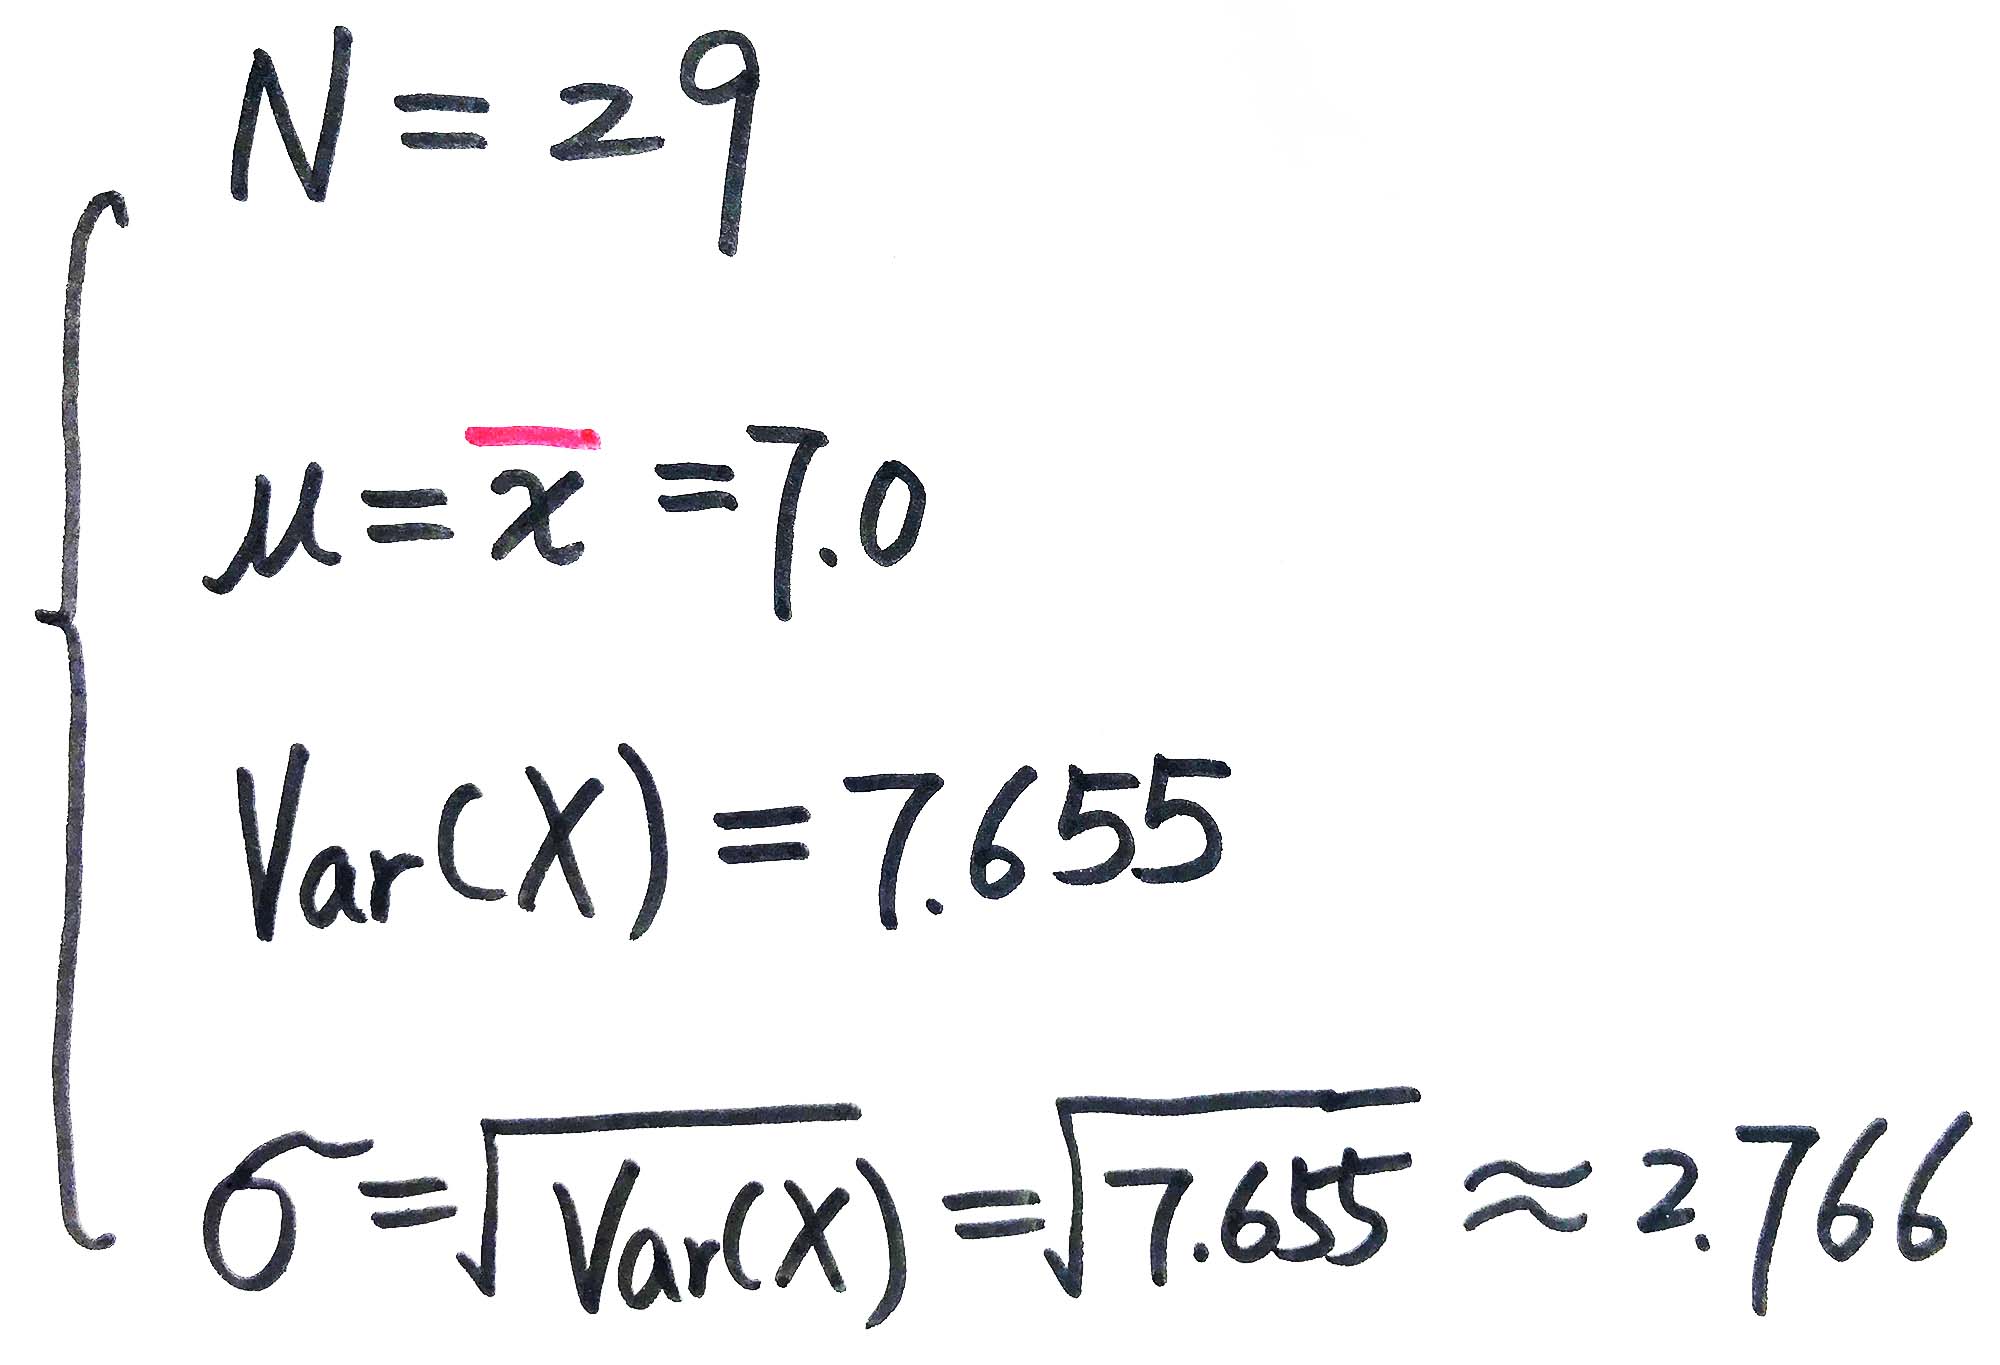 N = 29
μ = x̄ = 7.0
Var(X) = 7.655
σ = √Var(X) = √7.655 ≈ 2.766